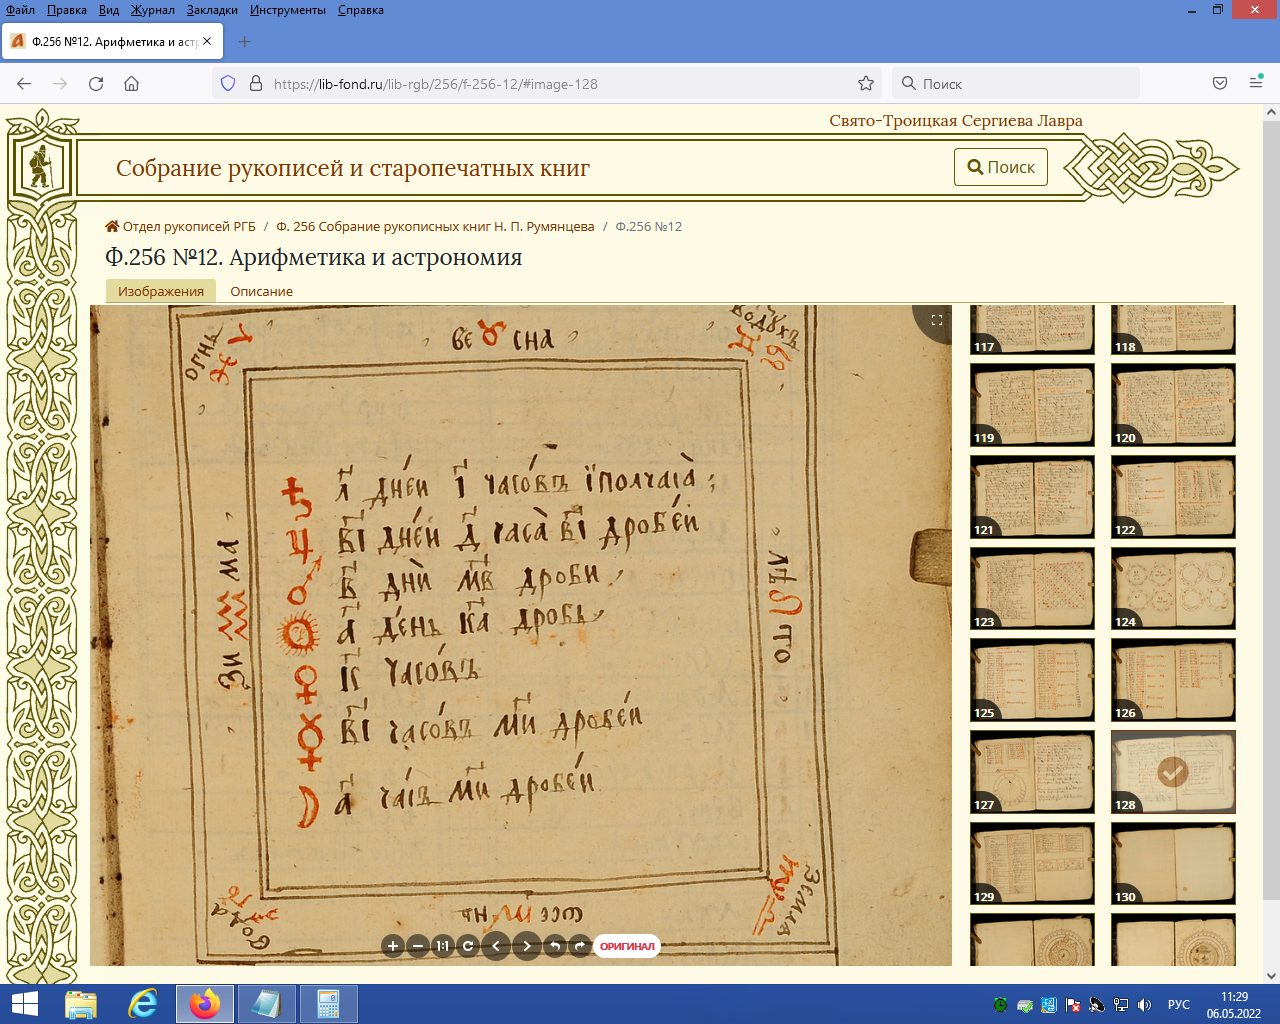 Файл Правка Вид Журнал Закладки Инструменты Справка
Ф.256 №12. Арифметика и астр
https://lib-fond.ru/lib-rgb/256/f-256-12/#image-128
Поиск
Свято-Троицкая Сергиева Лавра
Собрание рукописей и старопечатных книг
Поиск
Отдел рукописей РГБ / Ф. 256 Собрание рукописных книг Н. П. Румянцева / Ф.256 №12
Ф.256 №12. Арифметика и астрономия
Изображения Описание
огнь ♈
ве ♉ сна
воздухъ ♊
л҃ дне́й і҃ часо́въ і҆ полчаса̀ ;
♃ в҃і дне́й д҃ часа̀ в҃і дробе́й
♂ в҃ днѝ м҃в дроби
☉ а҃ де́нь к҃а дробь
♀ к҃ часо́въ
☿ в҃і часо́въ м҃и дробе́й
☽ а҃ ча́съ м҃и дробе́й
зи ♒ ма
лѣ ♌ то
ѻсе нь
вода
земля
117 118
119 120
121 122
123 124
125 126
127 128
129 130
1:1 ОРИГИНАЛ
РУС
11:29
06.05.2022